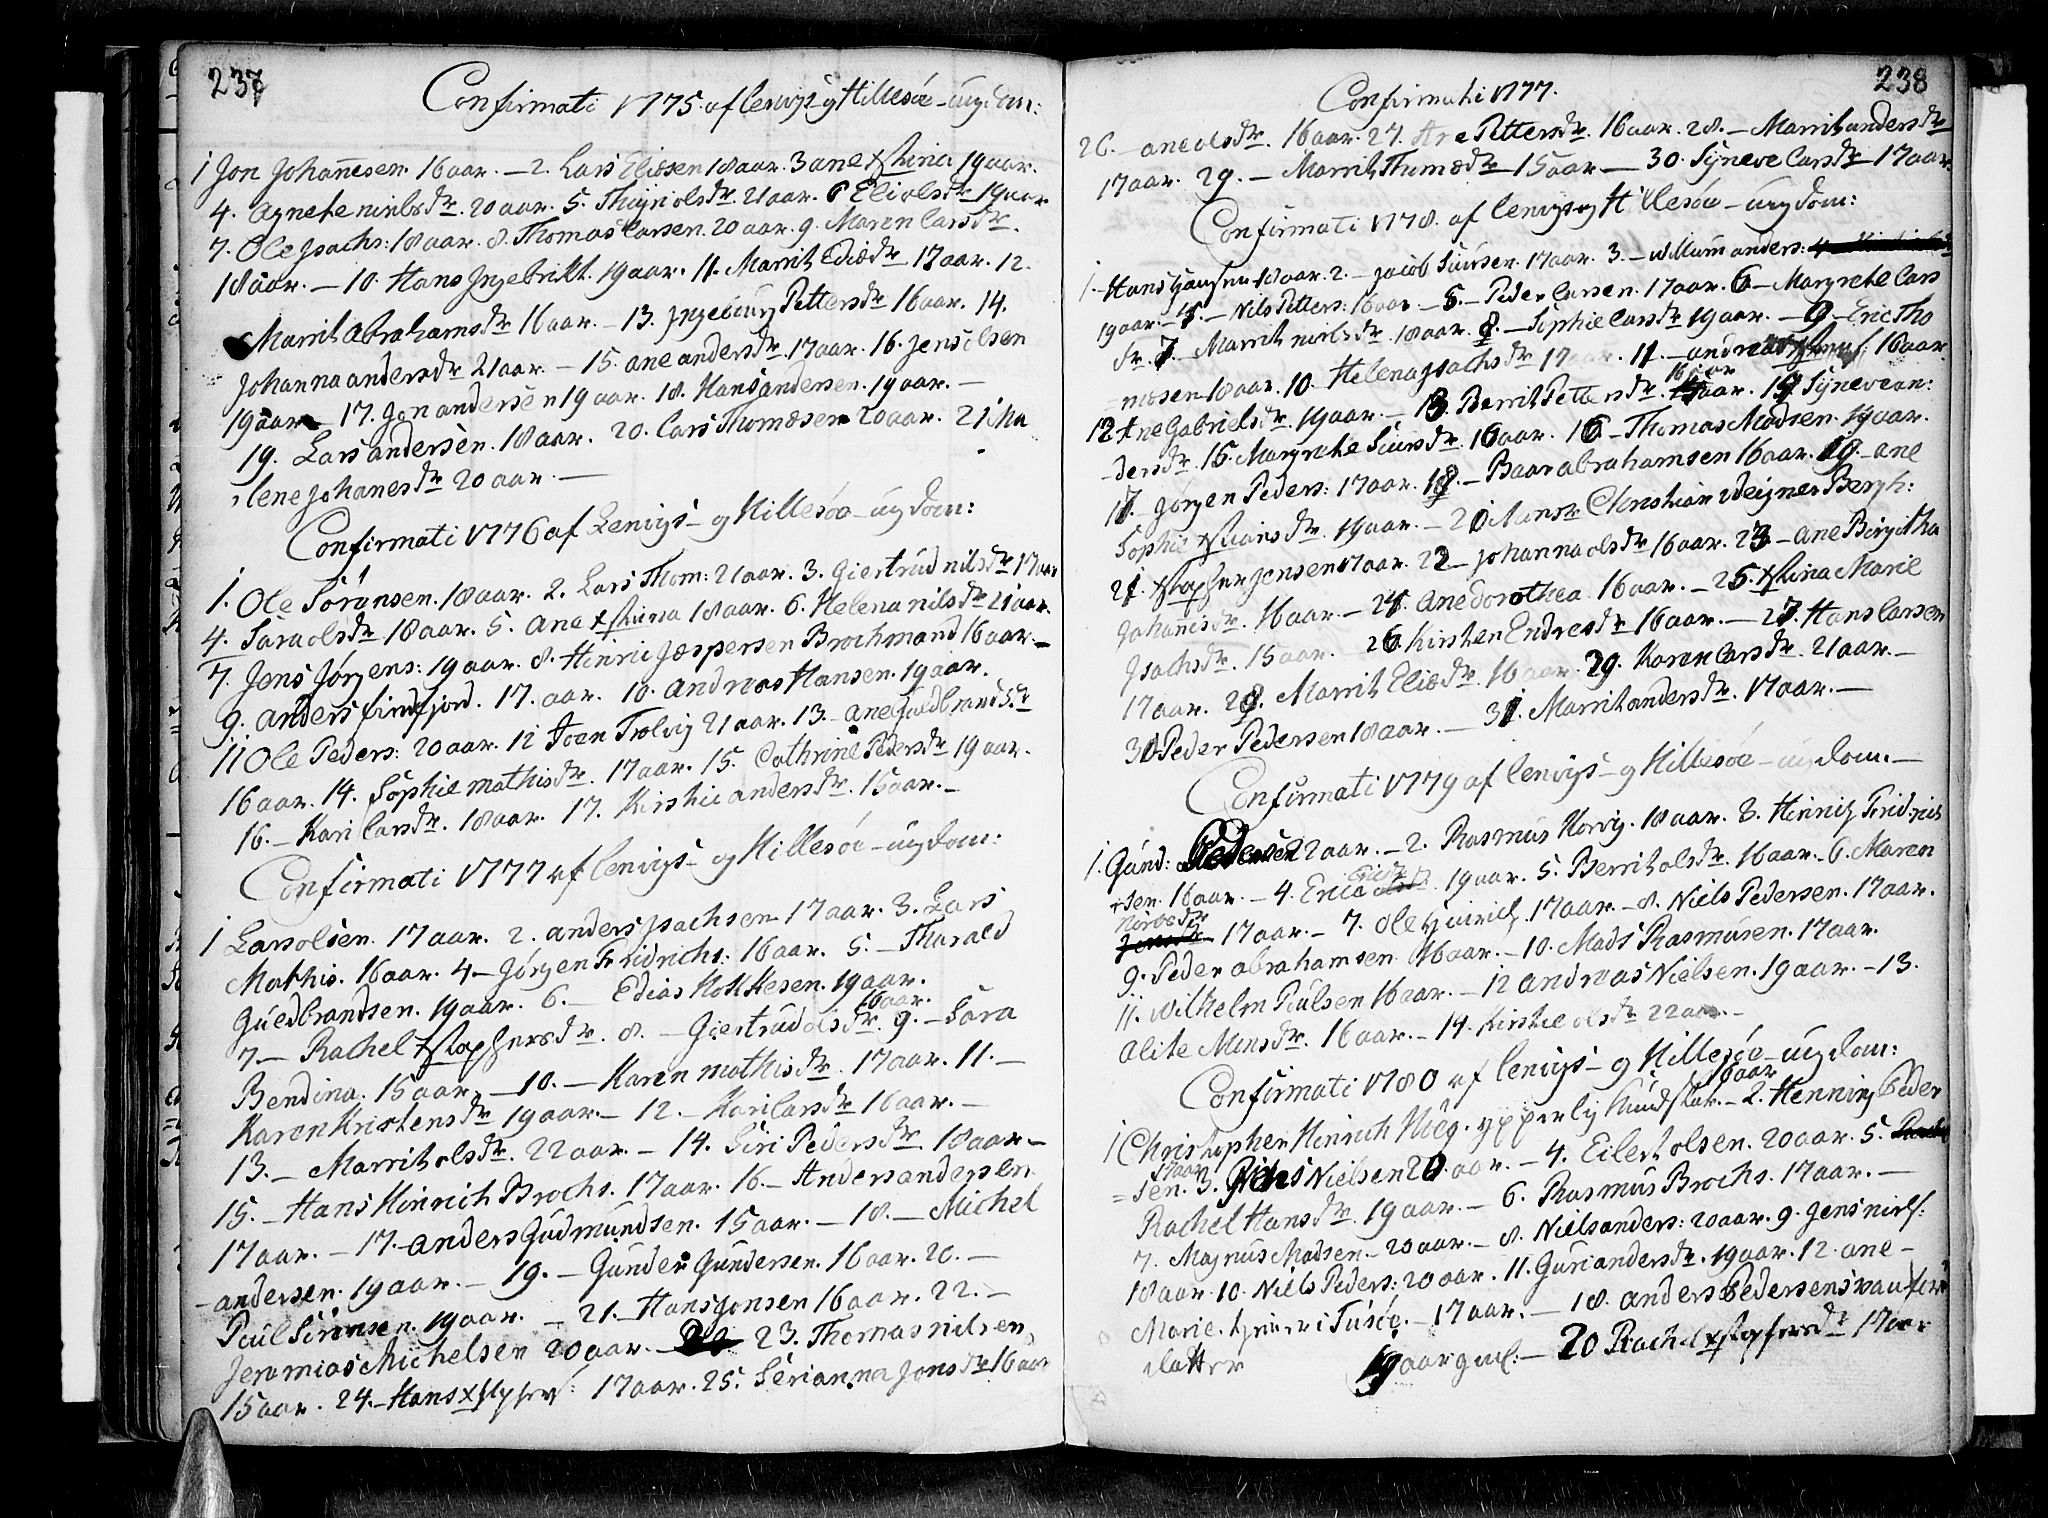 237
Confirmati 1775. af Lenvigs- og Hillesøe-ungdom:
1 Jon Johannesen. 16 aar. — 2. Lars Eliesen 18 aar. 3 ane xstina 19 aar.
4. Agnethe nielsdr. 20 aar. 5. Thuyn olsdr. 21 aar. 6 Eli olsdr 19 aar
7. Ole Jsachs: 18 aar. 8. Thomas Larsen. 20 aar. 9. Maren Larsdr.
18 aar. — 10. Hans Jngebrikt. 19 aar. 11. Marrit Ediædr 17 aar. 12.
Marrit Abrahamsdr 16 aar. — 13. Jngeburg Pettersdr 16 aar. 14.
Johanna andersdr 21 aar. — 15. ane andersdr. 17 aar. 16. Jens olsen
19 aar — 17. Jon andersen 19 aar. 18. Hans andersen. 19 aar. —
19. Lars andersen. 18 aar. 20. Lars Thomæsen 20 aar. 21 Ma
lene Johanesdr 20 aar. —
Confirmati 1776 af Lenvigs- og Hillesøe-ungdom:
1. Ole Sørensen. 18 aar. 2. Lars Thom: 21 aar. 3. Giertrud nilsdr 17 aar
4. Sara olsdr 18 aar. 5. Ane xstina 18 aar. 6. Helena nilsdr 21 aar.
7. Jens Jørgens: 19 aar. 8. Hinric Jæspersen Brochmand 16 aar. —
9. Anders findfjord. 17. aar. 10. Andreas Hansen. 19 aar.
11 Ole Peders: 20 aar. 12 Joen Trolvig 21 aar. 13. — ane Guldbrandsdr
16 aar. 14. Sophie mathisdr. 17 aar. 15. Cathrine Pedersdr 19 aar.
16. — Kari Larsdr. 18 aar. 17. Kirstie andersdr. 15 aar. —
Confirmati 1777 af Lenvigs- og Hillesøe-ungdom:
1 Lars olsen. 17 aar. 2. anders Jsachsen 17 aar. 3. Lars
Mathis. 16 aar. 4 — Jørgen Fridrichs: 16 aar. 5. — Tharald
Guldbrandsen. 19 aar. 6. — Edias Kokkesen. 19 aar.
7 — Rachel xstophersdr. 8. — Giertrud olsdr. 16 aar. 9. — Sara
Bendina. 15 aar. — 10. — Karen mathisdr. 17 aar. 11. —
Karen Kristensdr 19 aar. — 12. — Kari Larsdr 16 aar. —
13. — Marrit olsdr. 22 aar. — 14. Siri Pedersdr. 18 aar. —
15. — Hans Hinrich Brochs. 17 aar. 16. — Anders andersen
17 aar. — 17. — anders Gudmundsen. 15 aar. — 18. — Michel
-andersen. 19 aar. — 19. — Gunder Gundersen. 16 aar. 20. —
Paul Sørensen. 19 aar. — 21. — Hans Jonsen 16 aar. 22. —
Jeremias Michelsen 20 aar. — 23. Thomas nilsen,
15 aar. 24. — Hans xstophers: 17 aar. 25. Serianna Jonsdr 16 aar
238
Confirmati 1777.
26. — ane olsdr. 16 aar. 27. Are Pettersdr. 16 aar. 28. — Marrit andersdr
17 aar. 29. — Marrit Thomædr 15 aar — 30. Syneve Larsdr 17 aar.
Confirmati 1778. af Lenvigs og Hillesøe-ungdom:
1. Hans Hansen 18 aar. 2. — Jacob Siursen. 17 aar. 3. — Willum anders:
19 aar. — 4. — Nils Petters: 16 aar — 5. — Peder Larsen. 17 aar. 6 — Margrethe Lars
dr. 7. — Marrit nielsdr. 18 aar. 8. — Sophie Larsdr 19 aar. — 9. Eric Tho
-mesen 18 aar. 10. Helena Jsachsdr 17 aar. 11. — andreas 16 aar
12 Ane Gabrielsdr. 19 aar. — 13. Berrit Pettersdr. 16 aar 14 Syneve an:
-dersdr. 15. Margrethe Siursdr. 16 aar. 16 — Thomas Madsen. 19 aar.
17. Jørgen Peders: 17 aar. 18. — Baar abrahamsen 16 aar. 19. — ane
Sophie xstiansdr. 19 aar. — 20 Monsr. Christian Weigner Bergh:
21. xstopher Jensen 17 aar. 22 — Johanna olsdr 16 aar. 23 — ane Birgitha
Johannesdr. 16 aar. — 24. ane dorothea 16 aar. — 25. xstina Marie
Jsachsdr. 15 aar. 26 Kirsten Endresdr 16 aar. — 27. Hans Larsen
17 aar. 28. Marrit Eliædr. 16 aar. 29. Karen Larsdr. 21 aar. —
30 Peder Pedersen 18 aar. — 31. Marrit andersdr. 17 aar. —
Confirmati 1779 af Lenvigs- og Hillesøe-ungdom. —
1. Gund: Pedersen 22 aar. — 2. Rasmus Korvig. 18 aar. 3. Hinrich Fridrich
sen. 16 aar. — 4. Erica 19 aar. 5. Berrit olsdr. 16 aar. — 6. Maren
17 aar. — 7. Ole Hinrich. 17 aar. — 8. Niels Pedersen. 17 aar.
9. Peder abrahamsen. 16 aar. — 10. Mads Rasmusen. 17 aar.
11. Wilhelm Poulsen 16 aar. — 12 andreas Nielsen. 19 aar. — 13.
Olite Monsdr. 16 aar. — 14. Kirstie olsdr 22 aar. —
Confirmati 1780 af Lenvigs- og Hillesøe-ungdom:
1 Christopher Hinrich Kieg. ypperlig kundskab. — 16 aar 2. Henning Peder
= sen. 17 aar 3. Jens Nielsen 20 aar. — 4. Eilert olsen. 20 aar. 5.
Rachel Hansdr. 19 aar. — 6. Rasmus Brochs. 17 aar. —
7. Magnus Madsen. — 20 aar. — 8. Niels anders: 20 aar. 9. Jens niels:
18 aar. 10. Niels Peders: 20 aar. 11. Guri andersdr. 19 aar. 12. ane —
Marie. 17 aar. — 18. anders Pedersens
datter 19 aar gml. — 20 Rachel xstophersdr 17 aar